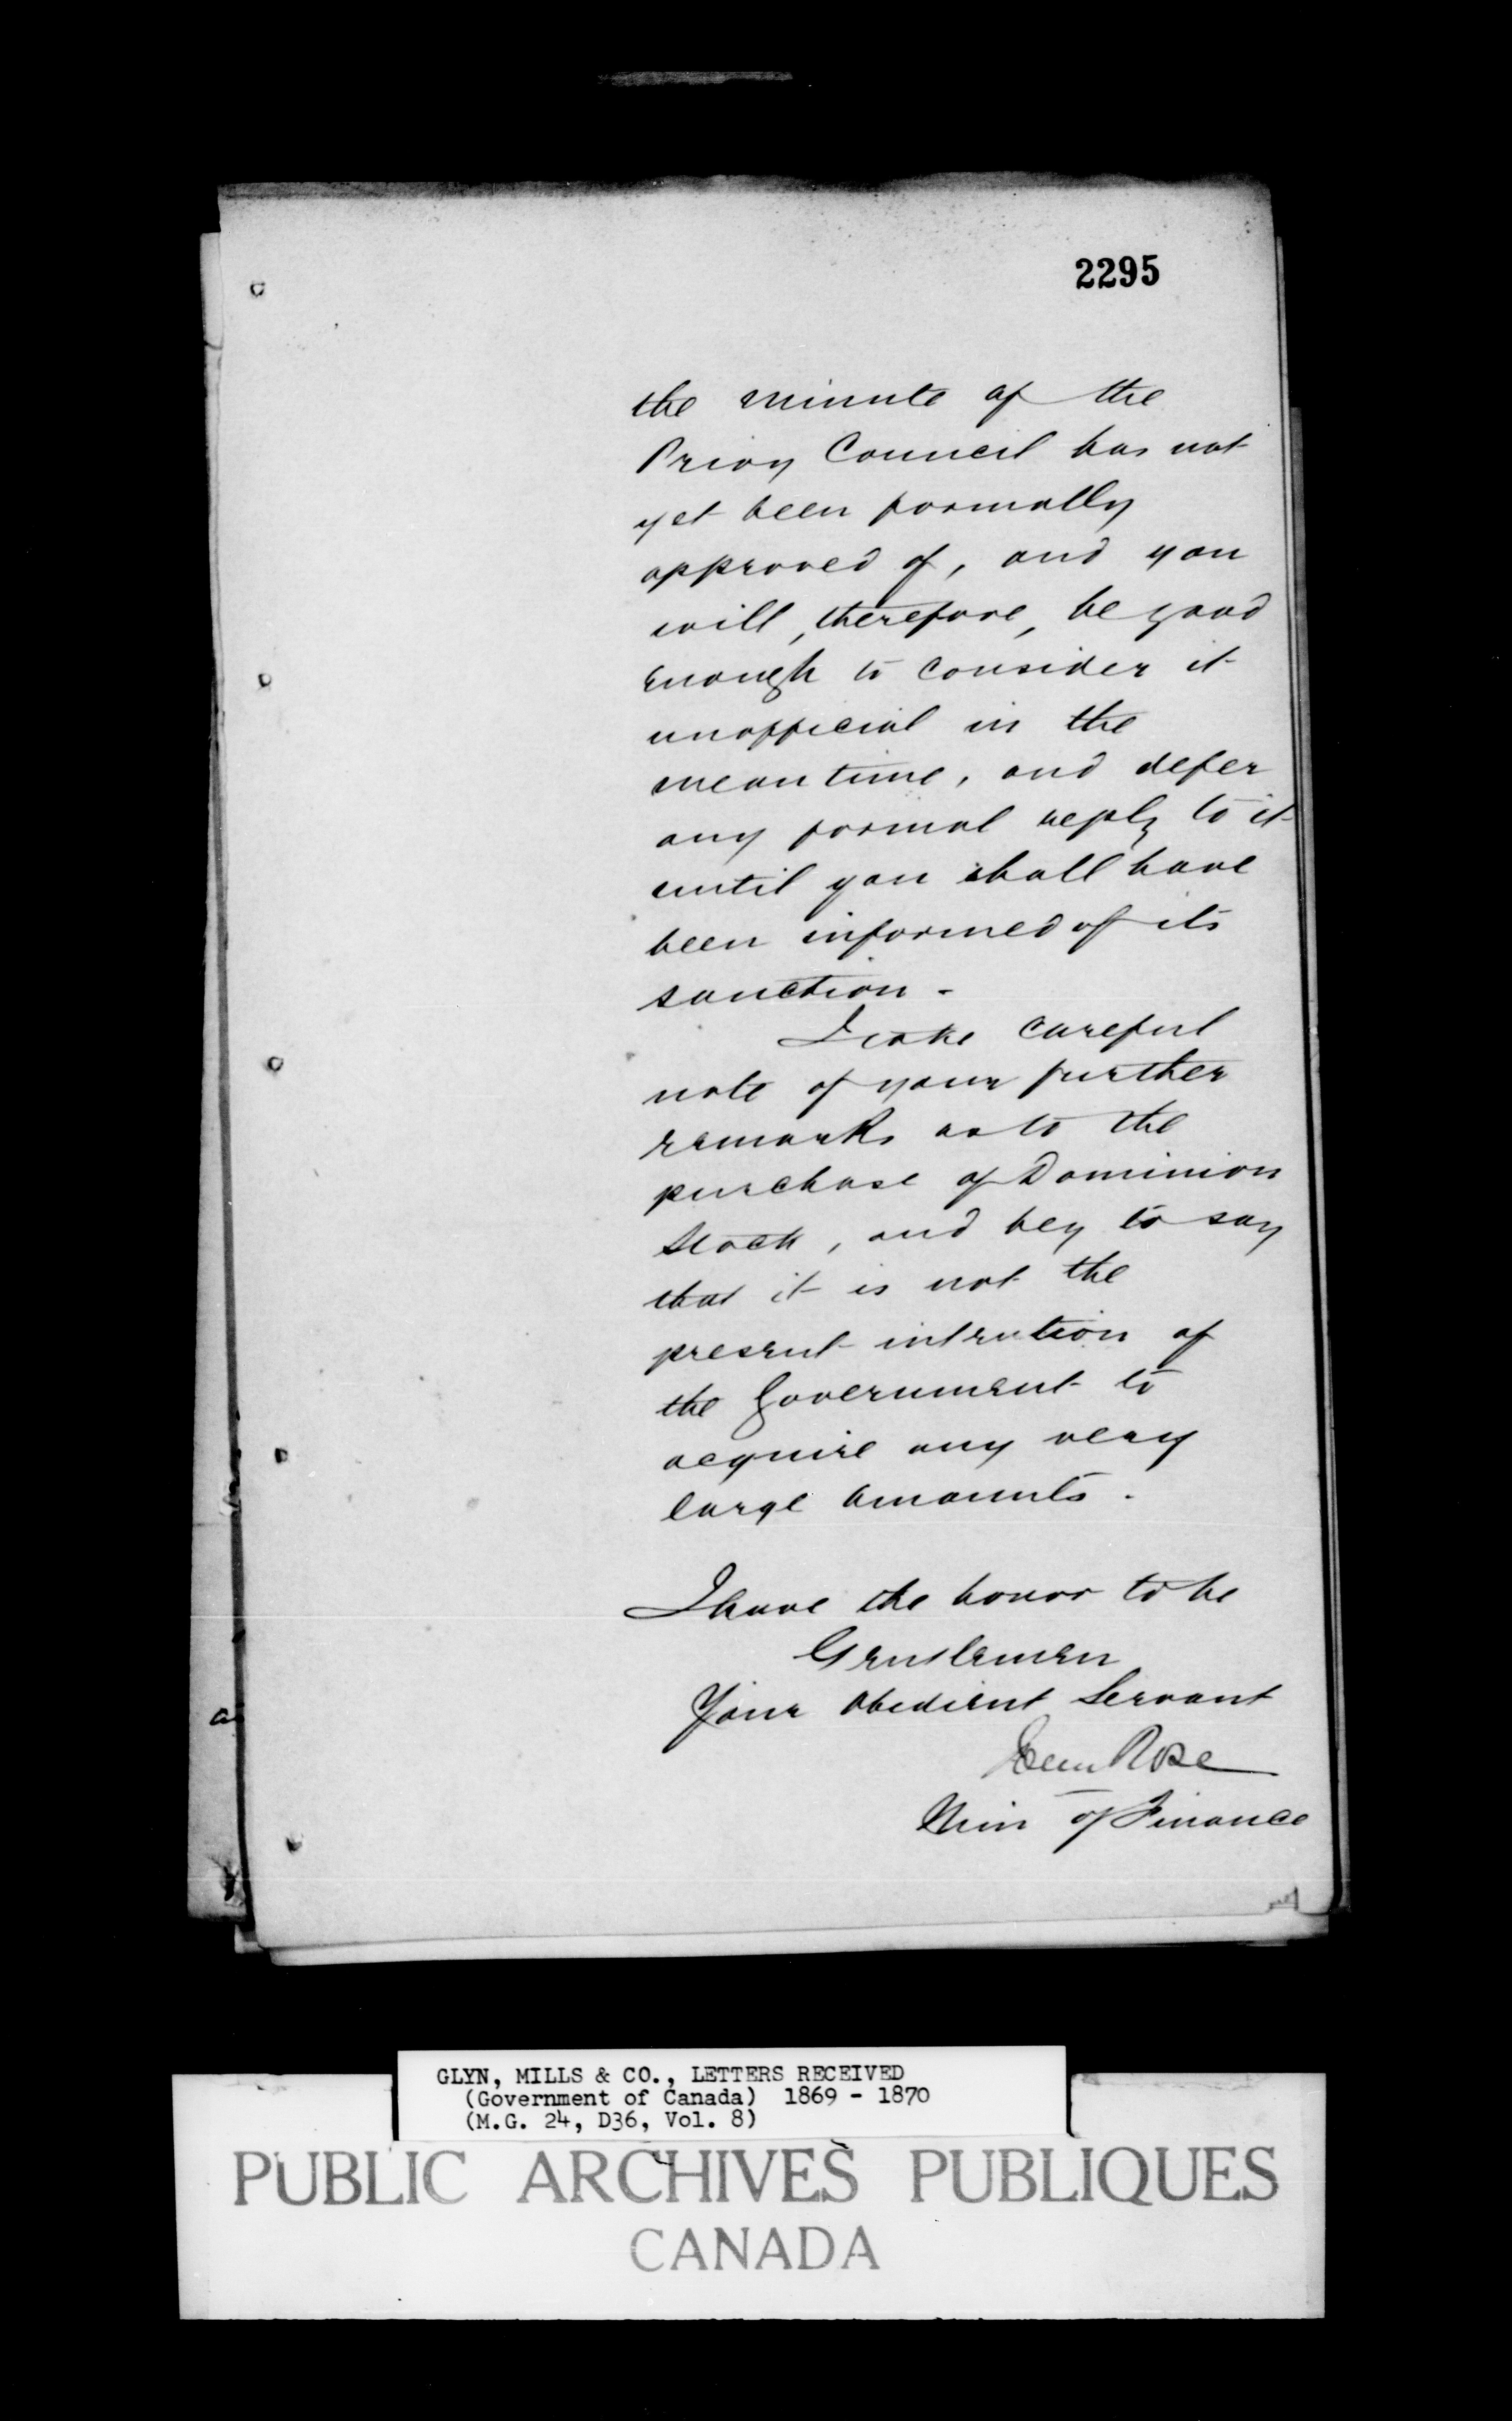 2295
the minute of the
Privy Council has not
yet been formally
approved of, and you
will, therefore, be good
enough to consider it
unofficial in the
mean time, and defer
any formal reply to it
until you shall have
been informed of its
sanction -
I take careful
note of your further
remarks as to the
purchase of Dominion
Stock, and beg to say
that it is not the
present intention of
the Government to
acquire any very
large amounts.
I have the honor to be
Gentlemen
Your Obedient Servant
John Rose
Min of Finance
GLYN, MILLS & CO., LETTERS RECEIVED
(Government of Canada) 1869 - 1870
(M.G. 24, D36, Vol. 8)
PUBLIC ARCHIVES PUBLIQUES
CANADA